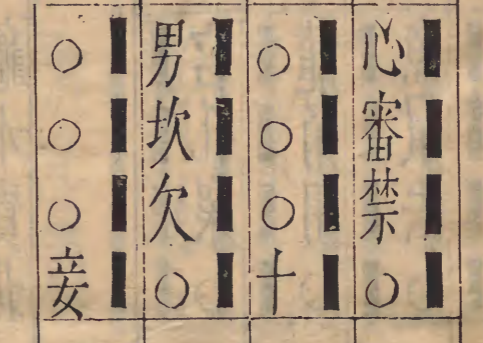 ▮▮▮▮
心審禁○
▮▮▮▮
○○○十
▮▮▮▮
男坎欠○
▮▮▮▮
○○○妾